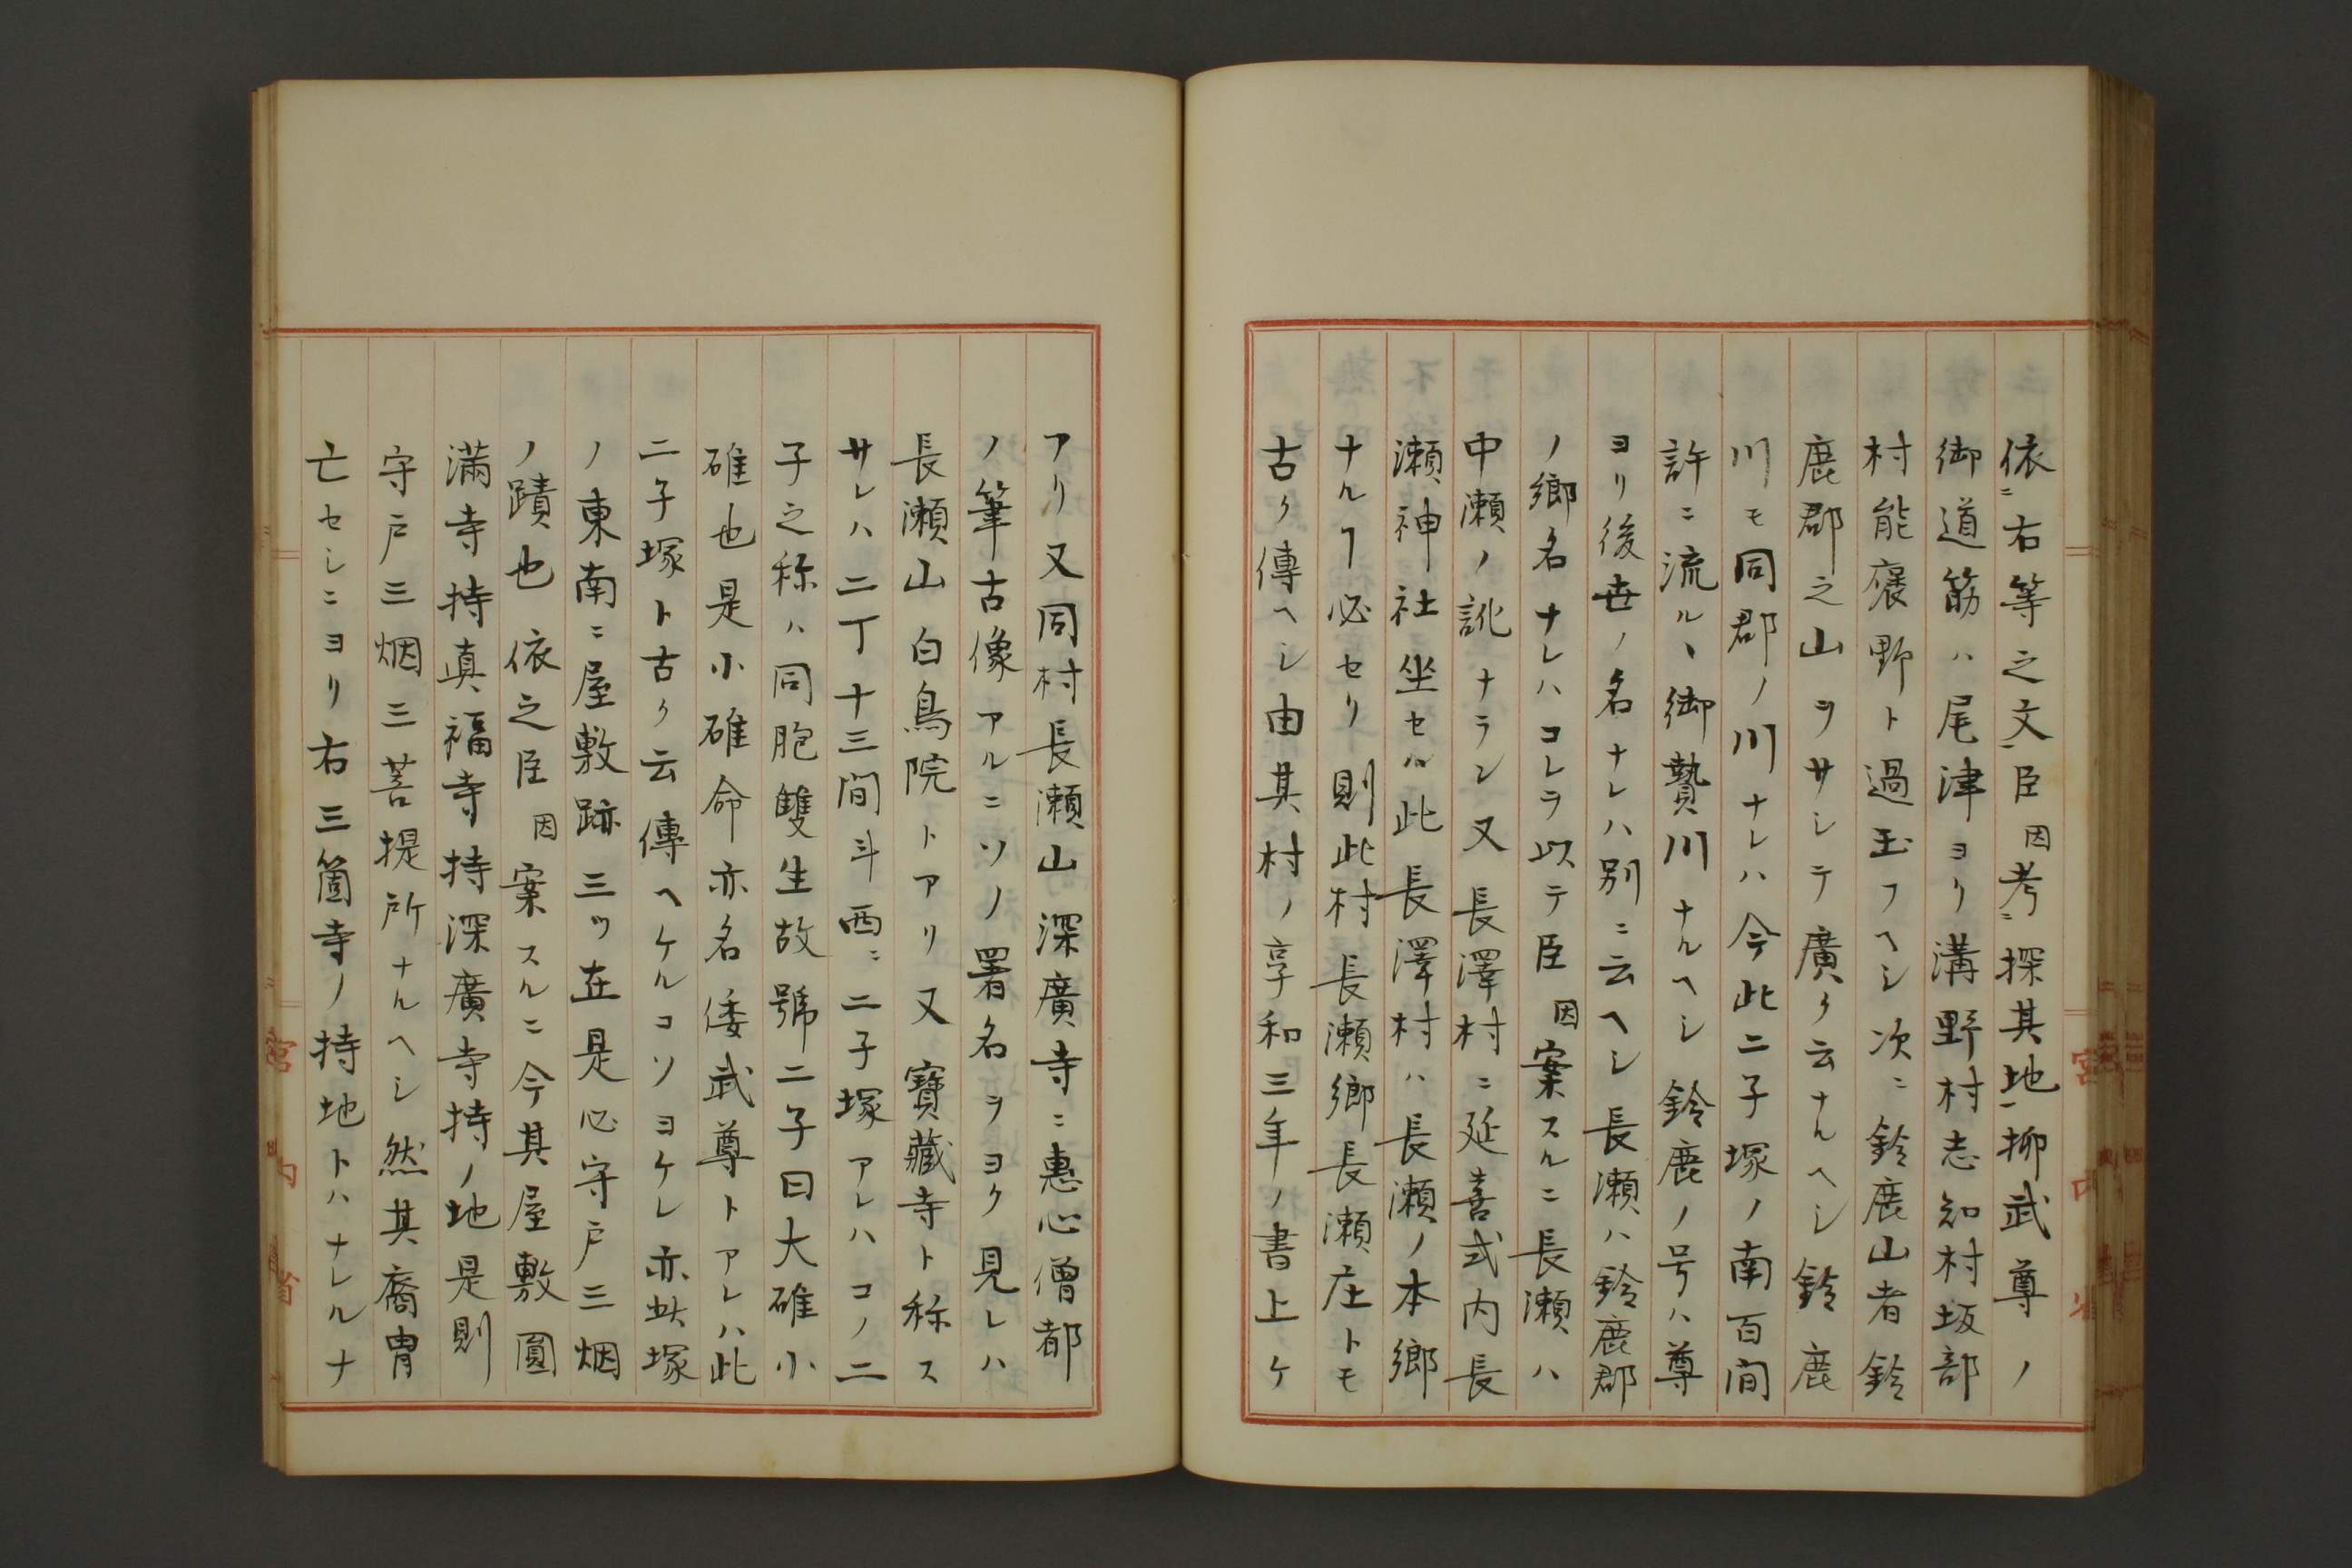 依ニ右等之文ニ臣因考ニ探其地ニ抑武尊ノ
御道筋ハ尾津ヨリ溝野村志知村坂部
村能褒野ト過玉フヘシ次ニ鈴鹿山者鈴
鹿郡之山ヲサシテ廣ク云ナルヘシ鈴鹿
川モ同郡ノ川ナレハ今此二子塚ノ南百間
許ニ流ルヽ御贄川ナルヘシ鈴鹿ノ号ハ尊
ヨリ後世ノ名ナレハ別ニ云ヘシ長瀬ハ鈴鹿郡
ノ郷名ナレハコレラ以テ臣因案スルニ長瀬ハ
中瀬ノ訛ナラン又長澤村ニ延喜式内長
瀬神社坐セル此長澤村ハ長瀬ノ本郷
ナルヿ必セリ則此村長瀬郷長瀬庄トモ
古ク傳ヘシ由其村ノ享和三年ノ書上ケ
アリ又同村長瀬山深廣寺ニ惠心僧都
ノ筆古像アルニソノ署名ヲヨク見レハ
長瀬山白鳥院トアリ又寶藏寺ト称ス
サレハ二丁十三間斗西ニ二子塚アレハコノ二
子之称ハ同胞雙生故號二子曰大碓小
碓也是小碓命亦名倭武尊トアレハ此
二子塚ト古ク云傳ヘケルコソヨケレ亦此塚
ノ東南ニ屋敷跡三ツ在是必守戸三烟
ノ蹟也依之臣因案スルニ今其屋敷圓
滿寺持真福寺持深廣寺持ノ地是則
守戸三烟三菩提所ナルヘシ然其裔冑
亡セシニヨリ右三箇寺ノ持地トハナレルナ
宮内省
宮内省